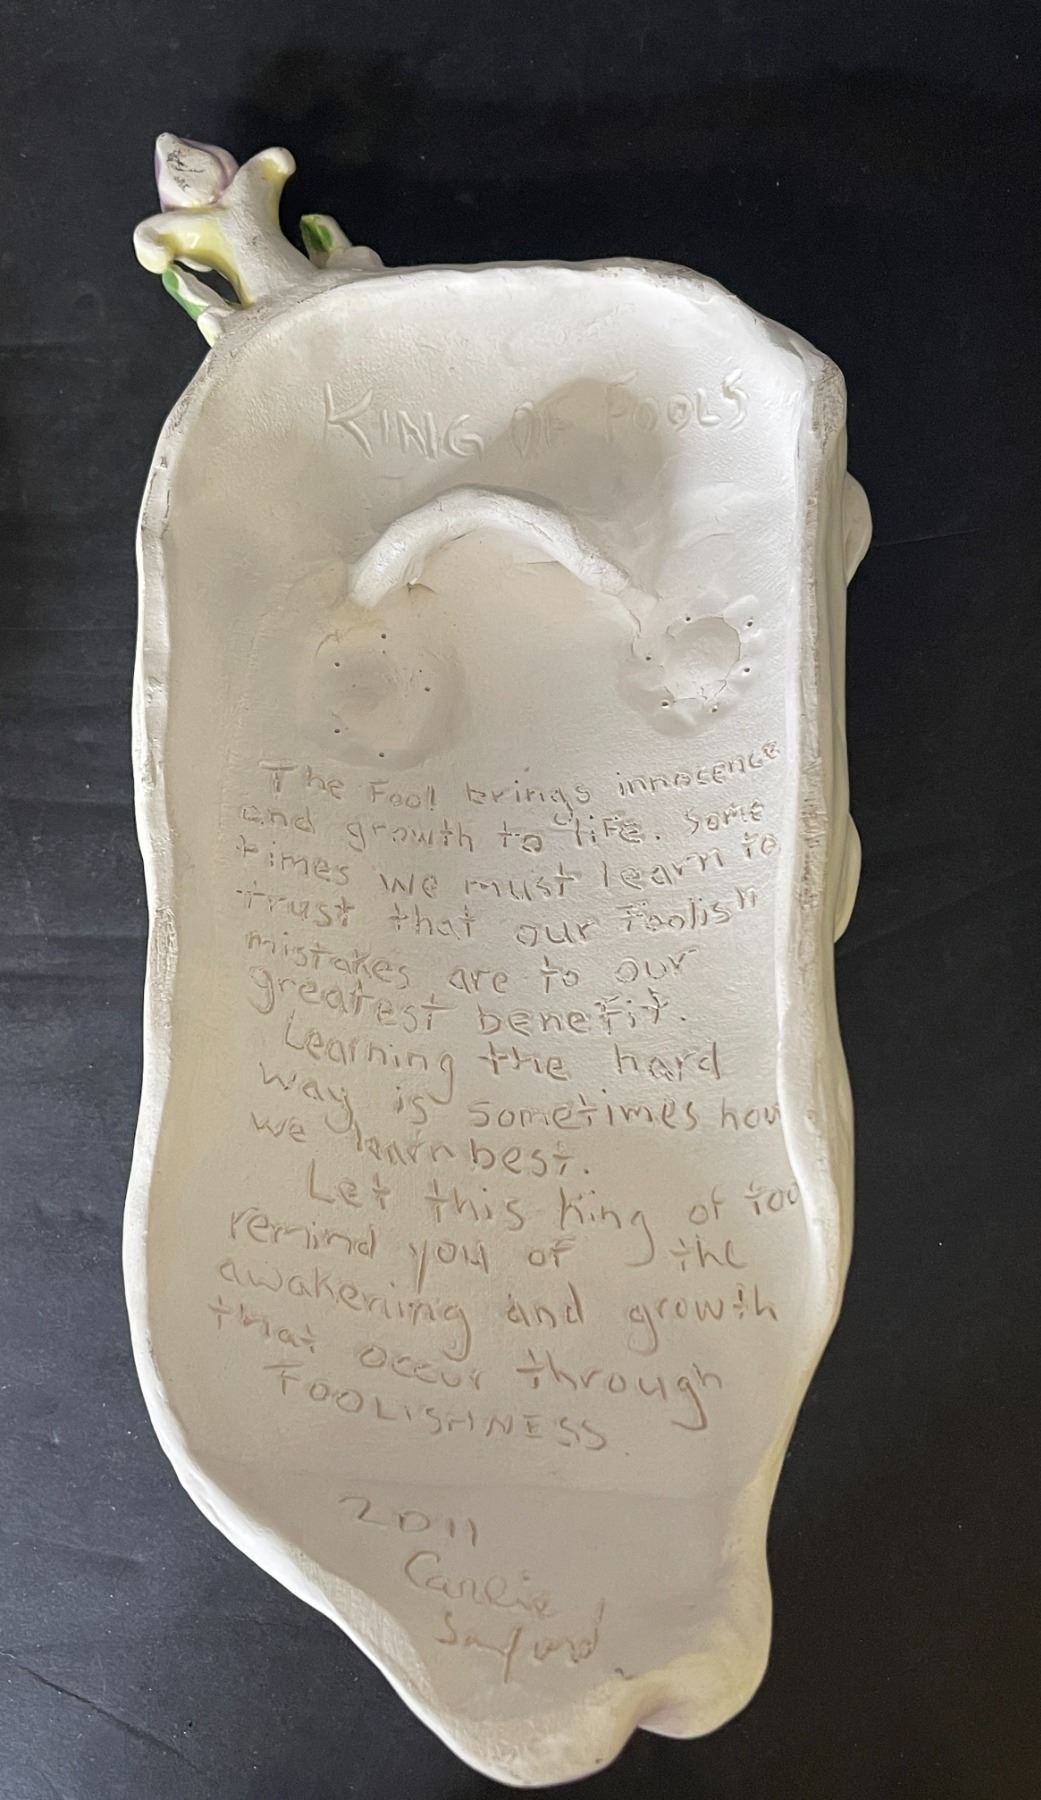 KING OF FOOLS
The Fool brings innocence
and growth to life. Some
times we must learn to
trust that our foolish
mistakes are to our
greatest benefit.
Learning the hard
way is sometimes how
we learn best.
Let this King of foo
remind you of the
awakening and growth
that occur through
FOOLISHNESS.
2011